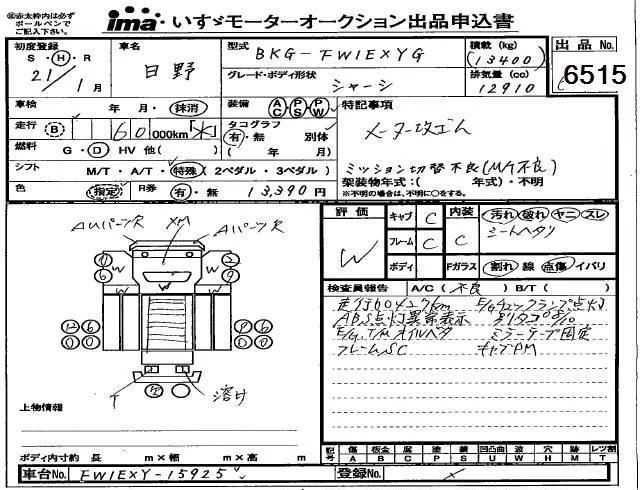 ※赤太枠内は必ず
ボールペンで
ご記入下さい。
ima いすゞモーターオークション出品申込書
初度登録
S・H・R
21/1月
車名
日野
型式 BKG-FW1EXYG
グレード・ボディ形状
シャーシ
積載(kg)
(13400)
排気量(cc)
12910
出品No.
6515
車検 年 月・抹消
装備 AC・PS・PW
特記事項
メーター改ざん
走行 B 60 000km
タコグラフ
有・無 別体
燃料 G・D HV 他( )
( 年 月)
ミッション切替不良(M/T不良)
シフト M/T・A/T・特殊(2ペダル・3ペダル)
架装物年式:( 年式)・不明
※不明の場合は、不明に○をする。
色 (指定) R券 有・無 13,390円
評価
W
キャブ C
内装 C
汚れ 破れ ヤニ スレ
シートヘタリ
フレーム C C
ボディ
Fガラス 割れ 線 点傷 イバリ
検査員報告 A/C(不良)B/T( )
走行604276km
E/Gチェックランプ点灯
ABS点灯異常表示
E/G,T/Mオイルベタ
ミラーテープ固定
フレームSC
キャブPM
AUパーツ欠
XM
Aパーツ欠
W
W
W
T
溶け
上物情報
ボディ内寸約 長 m×幅 m×高 m
記号 傷 板金 腐 塗 錆 凹凸曲 波 穴 跡 レツ割
A B C P S U W H M T
車台No. FW1EXY-15925
登録No.